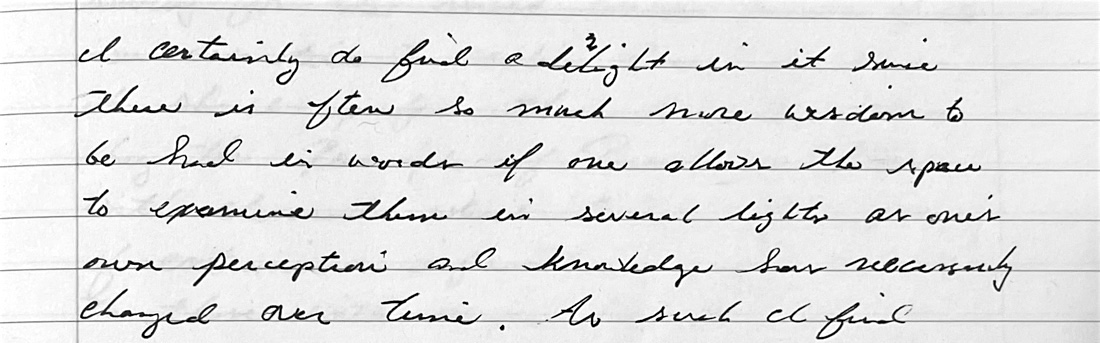 I certainly do find a delight in it since
there is often so much more wisdom to
be had in words if one allows the space
to examine them in several lights as one's
own perception and knowledge has necessarily
changed over time. As such I find